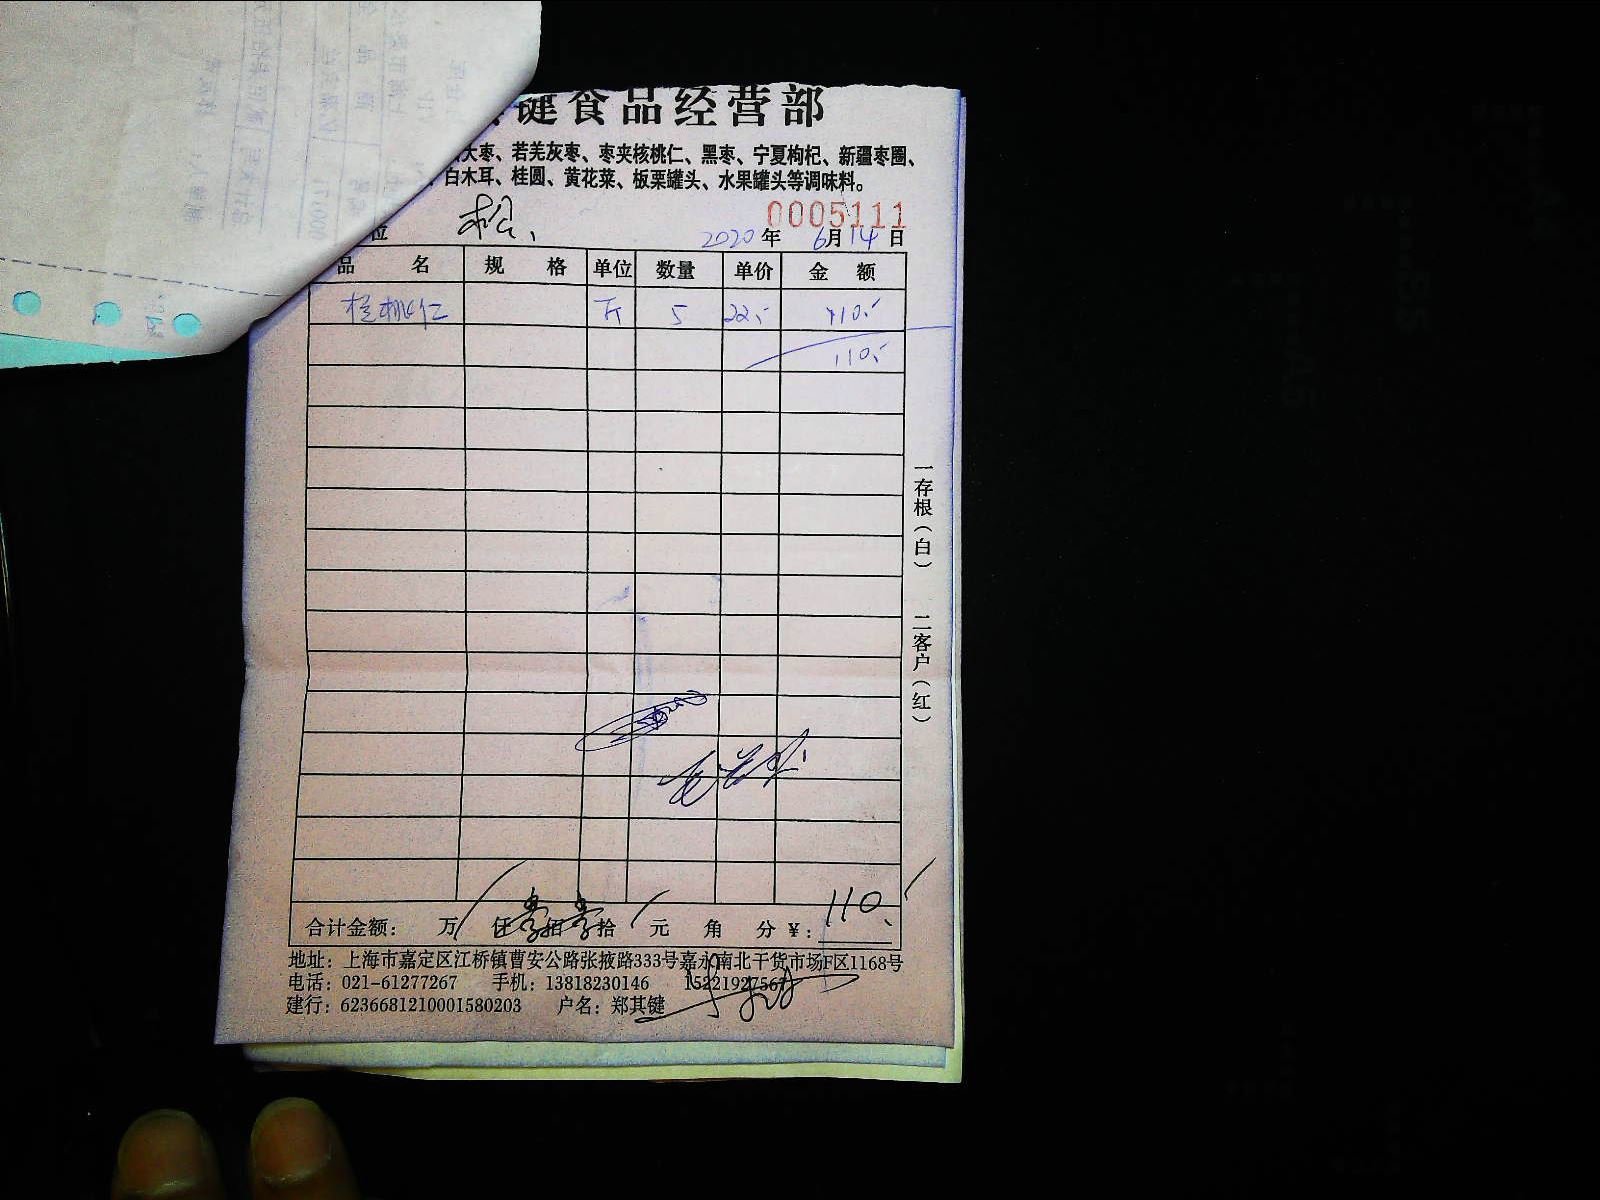 键食品经营部
大枣、若羌灰枣、枣夹核桃仁、黑枣、宁夏枸杞、新疆枣圈、
白木耳、桂圆、黄花菜、板栗罐头、水果罐头等调味料。
0005111
位 松
2020年 6月14日
品 名 规 格 单位 数量 单价 金 额
核桃仁 斤 5 22.- 110.-
110.-
一存根(白) 二客户(红)
合计金额: 万 仟壹佰壹拾 元 角 分 ¥: 110.
地址: 上海市嘉定区江桥镇曹安公路张掖路333号嘉永南北干货市场F区1168号
电话: 021-61277267 手机: 13818230146
建行: 6236681210001580203 户名: 郑其键